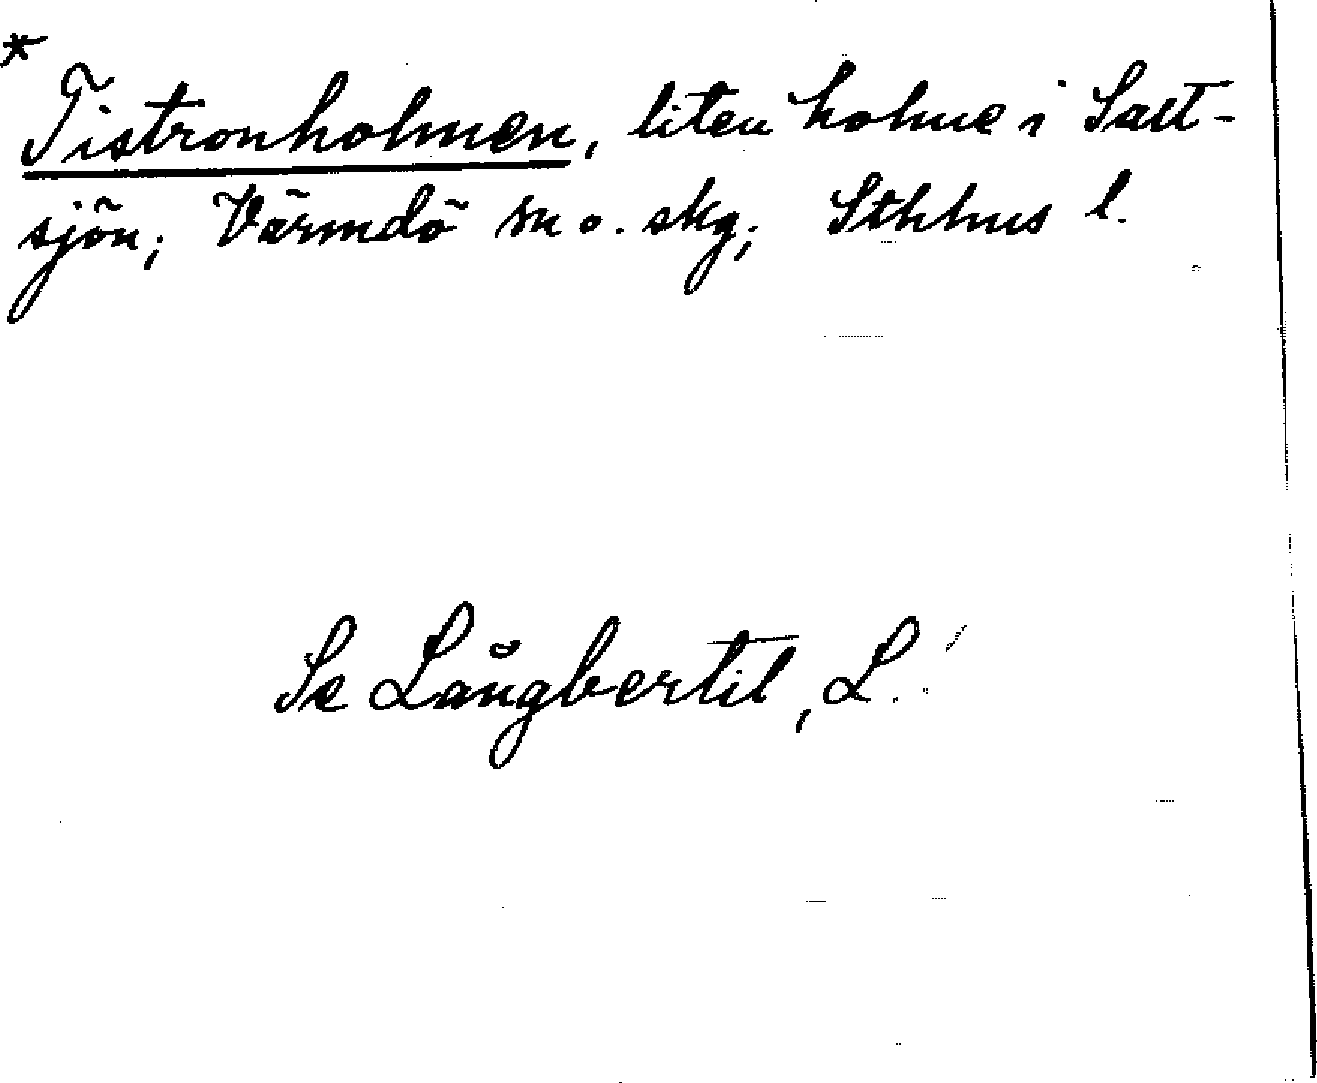 *
Tistronholmen, liten holme i Salt-
sjön; Värmdö sn o. skg; Sthlms l.
Se Långbertil, L.